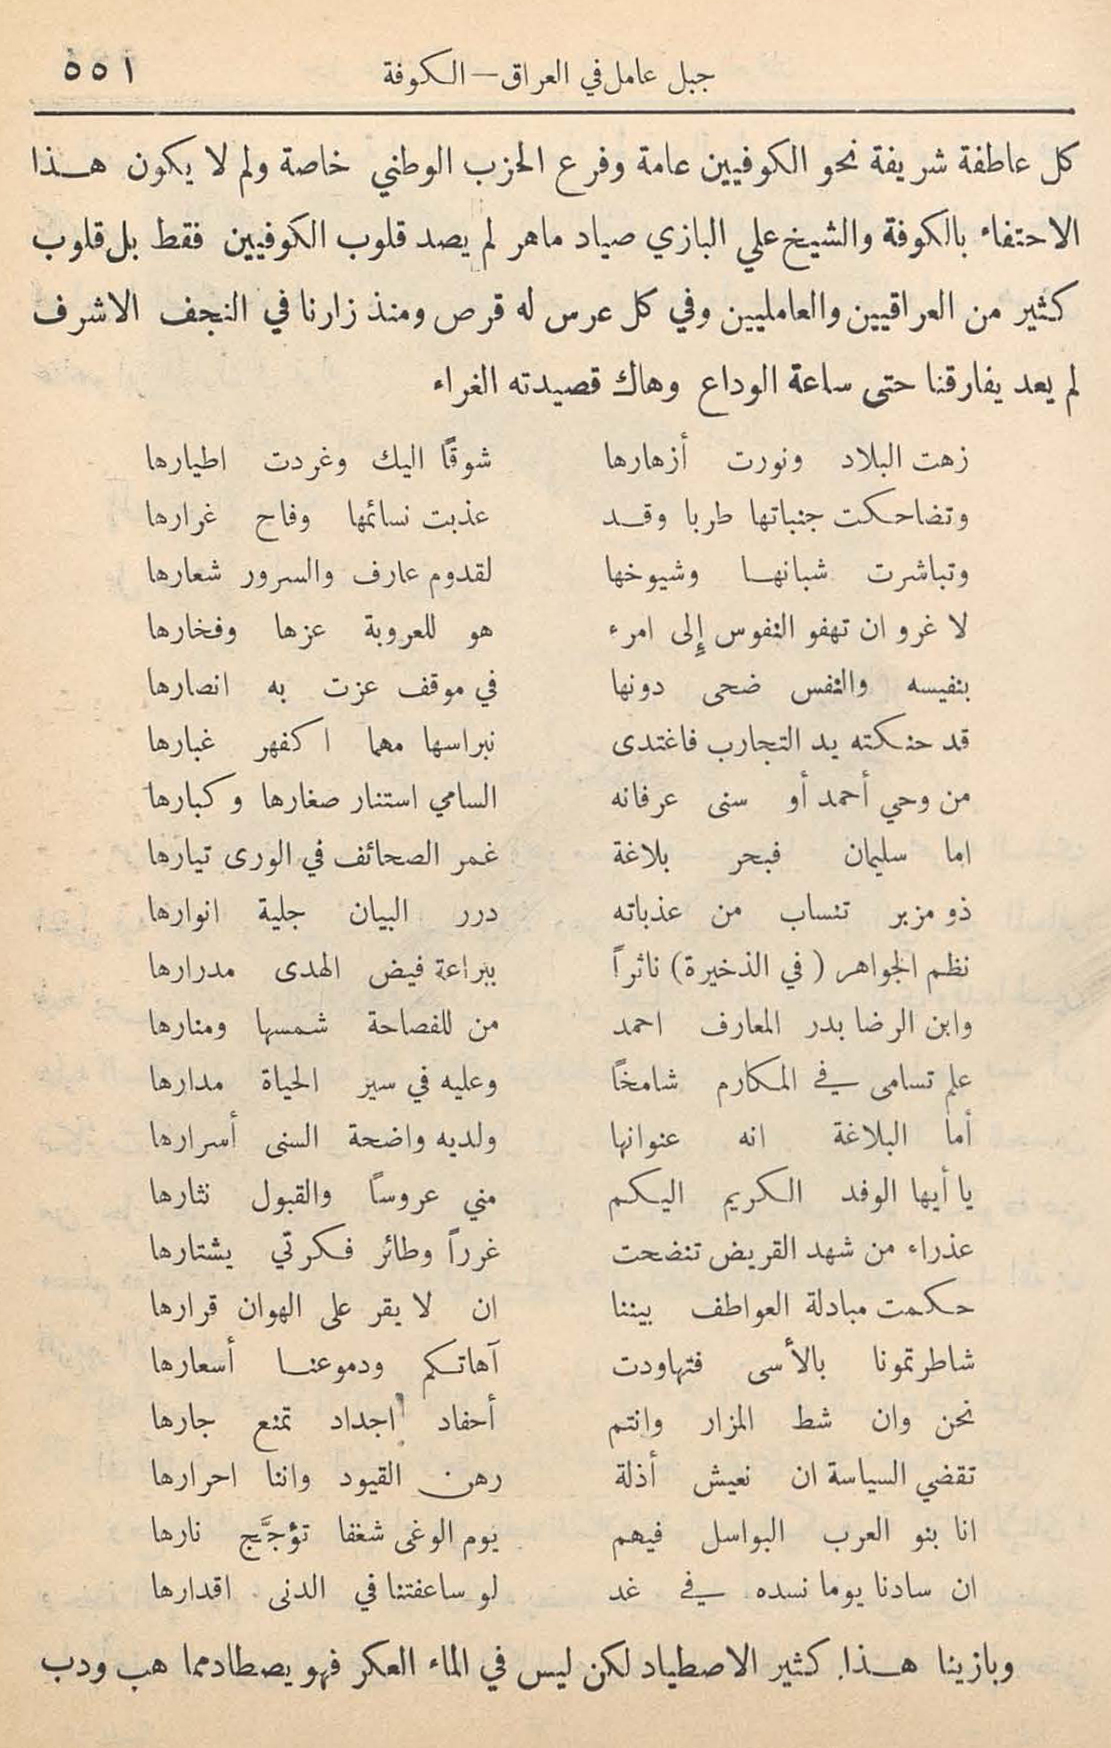 جبل عامل في العراق — الكوفة ٥٥١
كل عاطفة شريفة نحو الكوفيين عامة وفرع الحزب الوطني خاصة ولم لا يكون هـذا
الاحتفاء بالكوفة والشيخ علي البازي صياد ماهر لم يصد قلوب الكوفيين فقط بل قلوب
كثير من العراقيين والعامليين وفي كل عرس له قرص ومنذ زارنا في النجف الاشرف
لم يعد يفارقنا حتى ساعة الوداع وهاك قصيدته الغراء
زهت البلاد ونورت أزهارها شوقًا اليك وغردت اطيارها
وتضاحكت جنباتها طربا وقـد عذبت نسائمها وفاح غرارها
وتباشرت شبانهـا وشيوخها لقدوم عارف والسرور شعارها
لا غرو ان تهفو النفوس إلى امرء هو للعروبة عزها وفخارها
بنفيسه والنفس ضحى دونها في موقف عزت به انصارها
قد حنكته يد التجارب فاغتدى نبراسها مهما اكفهر غبارها
من وحي أحمد أو سنى عرفانه السامي استنار صغارها وكبارها
اما سليمان فبحر بلاغة غمر الصحائف في الورى تيارها
ذو مزبر تنساب من عذباته درر البيان جلية انوارها
نظم الجواهر ( في الذخيرة ) ناثراً ببراعة فيض الهدى مدرارها
وابن الرضا بدر المعارف احمد من للفصاحة شمسها ومنارها
علم تسامى في المكارم شامخًا وعليه في سير الحياة مدارها
أما البلاغة انه عنوانها ولديه واضحة السنى أسرارها
يا أيها الوفد الكريم اليكم مني عروساً والقبول نثارها
عذراء من شهد القريض تنضحت غرراً وطائر فكرتي يشتارها
حكمت مبادلة العواطف بيننا ان لا يقر على الهوان قرارها
شاطرتمونا بالأسى فتهاودت آهاتكم ودموعنـا أسعارها
نحن وان شط المزار وانتم أحفاد اجداد تمنع جارها
تقضي السياسة ان نعيش أذلة رهن القيود واننا احرارها
انا بنو العرب البواسل فيهم يوم الوغى شغفا تؤجَّج نارها
ان سادنا يوما نسده في غد لو ساعفتنا في الدنى اقدارها
وبازينا هـذا. كثير الاصطياد لكن ليس في الماء العكر فهو يصطاد مما هب ودب